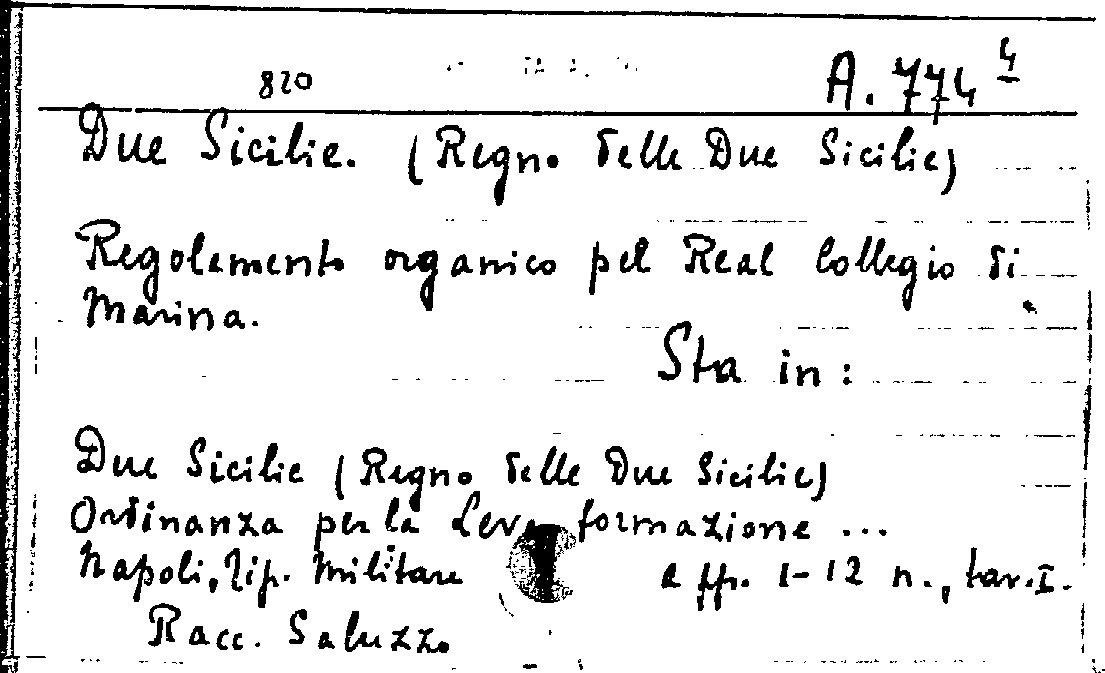 820
A. 774 4
Due Sicilie. (Regno delle Due Sicilie)
Regolamento organico pel Real Collegio di
Marina.
Sta in:
Due Sicilie (Regno delle Due Sicilie)
Ordinanza per la Leva formazione ...
Napoli, Tip. Militare a ff. 1-12 n., tav. I.
Racc. Saluzzo